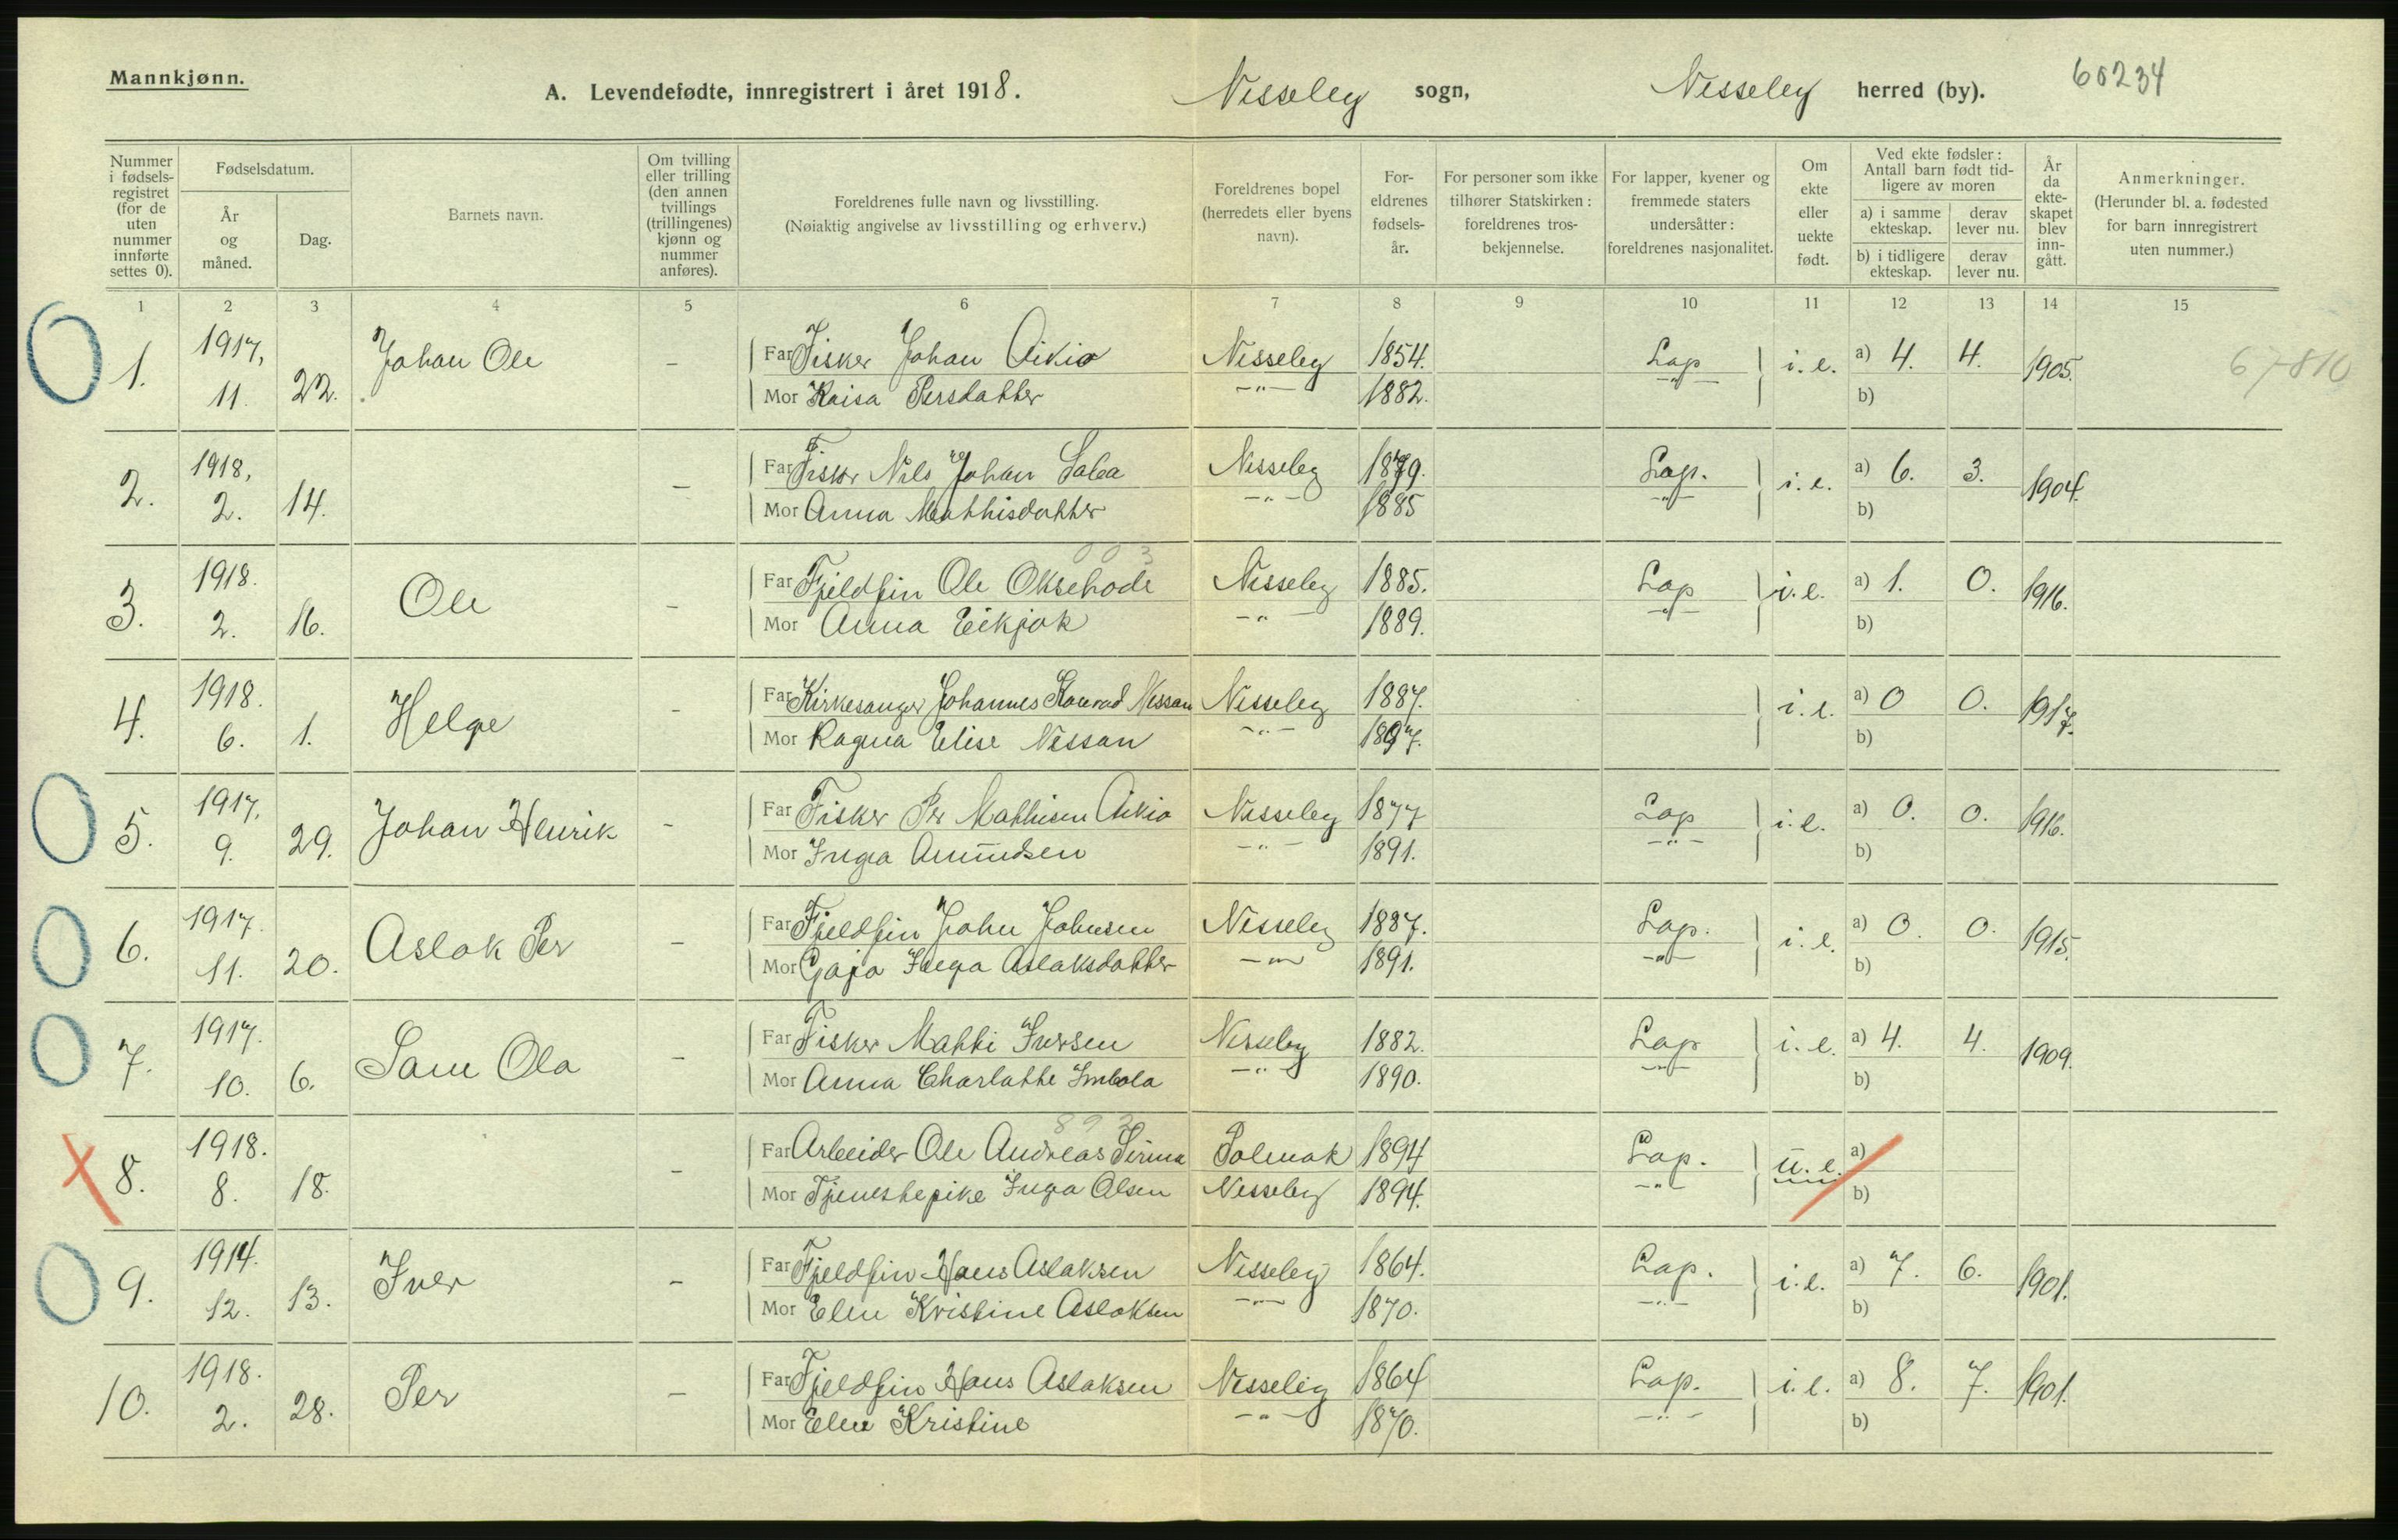 Mannkjønn.
A. Levendefødte, innregistrert i året 1918. Nesseby sogn, Nesseby herred (by). 60234
Nummer i fødselsregistret (for de uten nummer innførte settes 0).
Fødselsdatum.
År og måned.
Dag.
Barnets navn.
Om tvilling eller trilling (den annen tvillings (trillingenes) kjønn og nummer anføres).
Foreldrenes fulle navn og livsstilling.
(Nøiaktig angivelse av livsstilling og erhverv.)
Foreldrenes bopel (herredets eller byens navn).
Foreldrenes fødselsår.
For personer som ikke tilhører Statskirken: foreldrenes trosbekjennelse.
For lapper, kvener og fremmede staters undersåtter: foreldrenes nasjonalitet.
Om ekte eller uekte født.
Ved ekte fødsler: Antall barn født tidligere av moren
a) i samme ekteskap. derav lever nu.
b) i tidligere ekteskap. derav lever nu.
År da ekteskapet blev inngått.
Anmerkninger.
(Herunder bl. a. fødested for barn innregistrert uten nummer.)
1 2 3 4 5 6 7 8 9 10 11 12 13 14 15
1. 1917, 11. 22. Johan Ole - Far Fisker Johan Aikio Nesseby 1854. Lap i. e. a) 4. 4. 1905. 67-810
Mor Kaisa Persdatter -"- 1882. -"- b)
2. 1918, 2. 14. - Far Fisker Nils Johan Saba Nesseby 1879. Lap. i. e. a) 6. 3. 1904.
Mor Anna Mathisdatter -"- 1885 -"- b)
003
3. 1918. 2. 16. Ole - Far Fjeldfin Ole Oksehode Nesseby 1885. Lap i. e. a) 1. 0. 1916.
Mor Anna Eikjok -"- 1889. -"- b)
4. 1918. 6. 1. Helge - Far Kirkesanger Johannes Konrad Nissan Nesseby 1887. i. e. a) 0 0. 1917.
Mor Ragna Elise Nissan -"- 1897. b)
5. 1917, 9. 29. Johan Henrik - Far Fisker Per Mathisen Aikio Nesseby 1877 Lap i. e. a) 0. 0. 1916.
Mor Inga Amundsen -"- 1891. -"- b)
6. 1917. 11. 20. Aslak Per - Far Fjeldfin John Johnsen Nesseby 1887. Lap. i. e. a) 0. 0. 1915.
Mor Gaja Inga Aslaksdatter -"- 1891. -"- b)
7. 1917. 10. 6. Sam Ola - Far Fisker Matti Iversen Nesseby 1882. Lap i. e. a) 4. 4. 1909.
Mor Anna Charlotte -"- 1890. -"- b)
8. 1918. 8. 18. - Far Arbeider Ole Andreas Sirma Polmak 1894 Lap. u. e. a)
Mor Tjenestepike Inga Olsen Nesseby 1894. -"- b)
9. 1914. 12. 13. Iver - Far Fjeldfin Hans Aslaksen Nesseby 1864. Lap. i. e. a) 7. 6. 1901.
Mor Elen Kristine Aslaksen -"- 1870. -"- b)
10. 1918. 2. 28. Per - Far Fjeldfin Hans Aslaksen Nesseby 1864 Lap. i. e. a) 8. 7. 1901.
Mor Elen Kristine -"- 1870. -"- b)